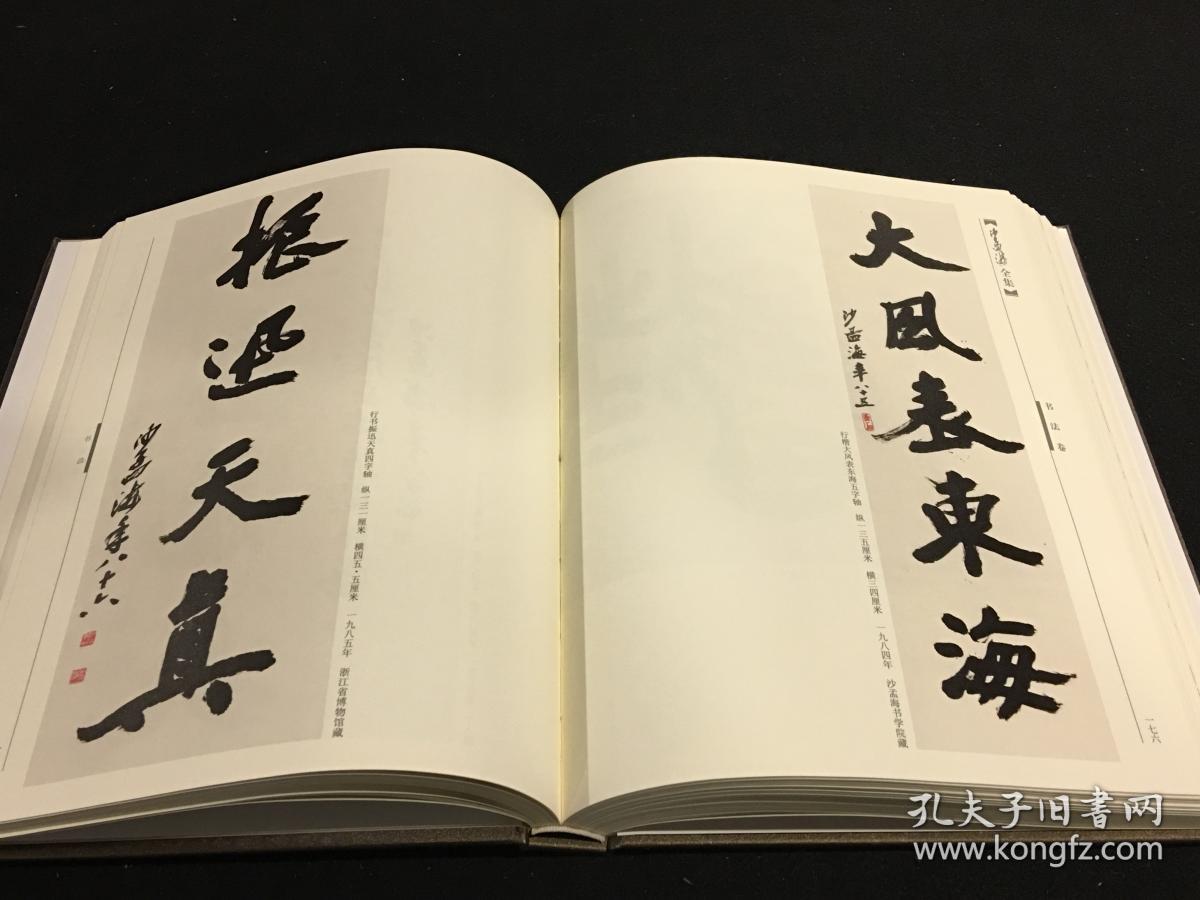 【沙孟海全集】
书法卷
一七六
大风表東海
沙孟海年八十五
行楷大风表东海五字轴 纵一三五厘米 横三四厘米 一九八四年 沙孟海书学院藏
振迅天真
沙孟海年八十六
行书振迅天真四字轴 纵一三一厘米 横四五·五厘米 一九八五年 浙江省博物馆藏
书法
孔夫子旧书网
www.kongfz.com